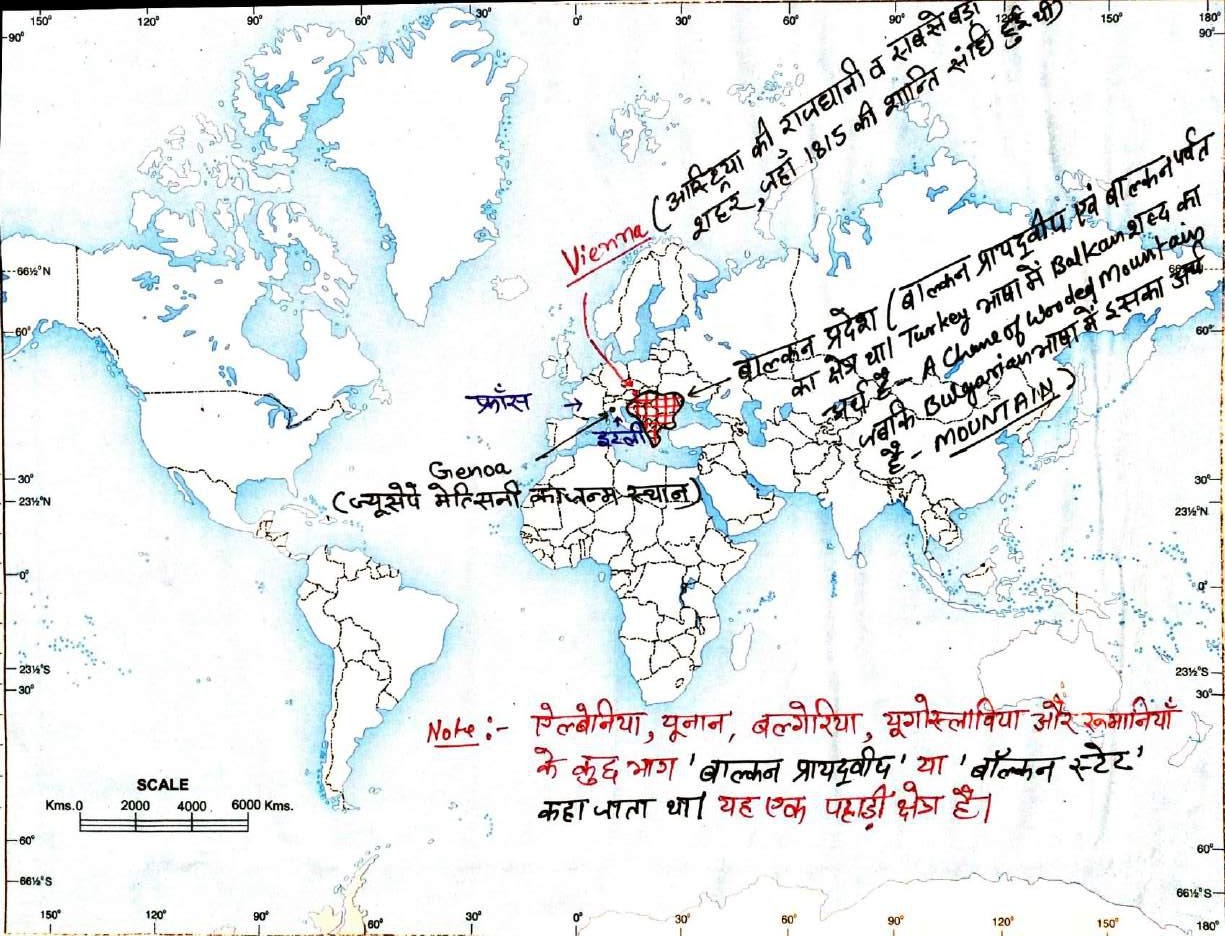 150° 120° 90° 60° 30° 0° 30° 60° 90° 120° 150° 180°
90° 90°
Vienna (आस्ट्रिया की राजधानी व सबसे बड़ा
शहर, जहाँ 1815 की शान्ति संधि हुई थी)
66½°N
60° 60°
बाल्कन प्रदेश (बाल्कन प्रायद्वीप एवं बाल्कन पर्वत
का क्षेत्र था। Turkey भाषा में Balkan शब्द का
अर्थ है - A Chane of Wooded Mountain
जबकि Bulgarian भाषा में इसका अर्थ
है - MOUNTAIN)
फ्रॉंस
इटली
Genoa
(ज्यूसेपे मेत्सिनी का जन्म स्थान)
30° 30°
23½°N 23½°N
0° 0°
23½°S 23½°S
30° 30°
Note :- ऐल्बेनिया, यूनान, बल्गेरिया, यूगोस्लाविया और रूमानियाँ
के कुछ भाग 'बाल्कन प्रायद्वीप' या 'बॉल्कन स्टेट'
कहा जाता था। यह एक पहाड़ी क्षेत्र है।
SCALE
Kms.0 2000 4000 6000 Kms.
60° 60°
66½°S 66½°S
150° 120° 90° 60° 30° 0° 30° 60° 90° 120° 150° 180°